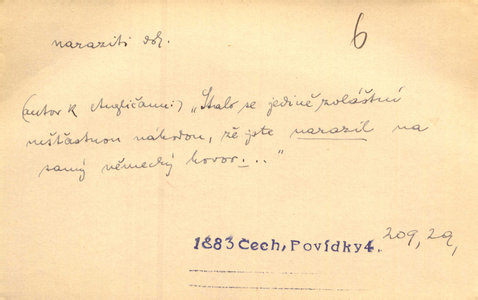 naraziti dok.
6
(autor k Angličanu:) „Stalo se jedině zvláštní
nešťastnou náhodou, že jste narazil na
samý německý hovor..."
1883 Čech, Povídky 4. 209, 29,